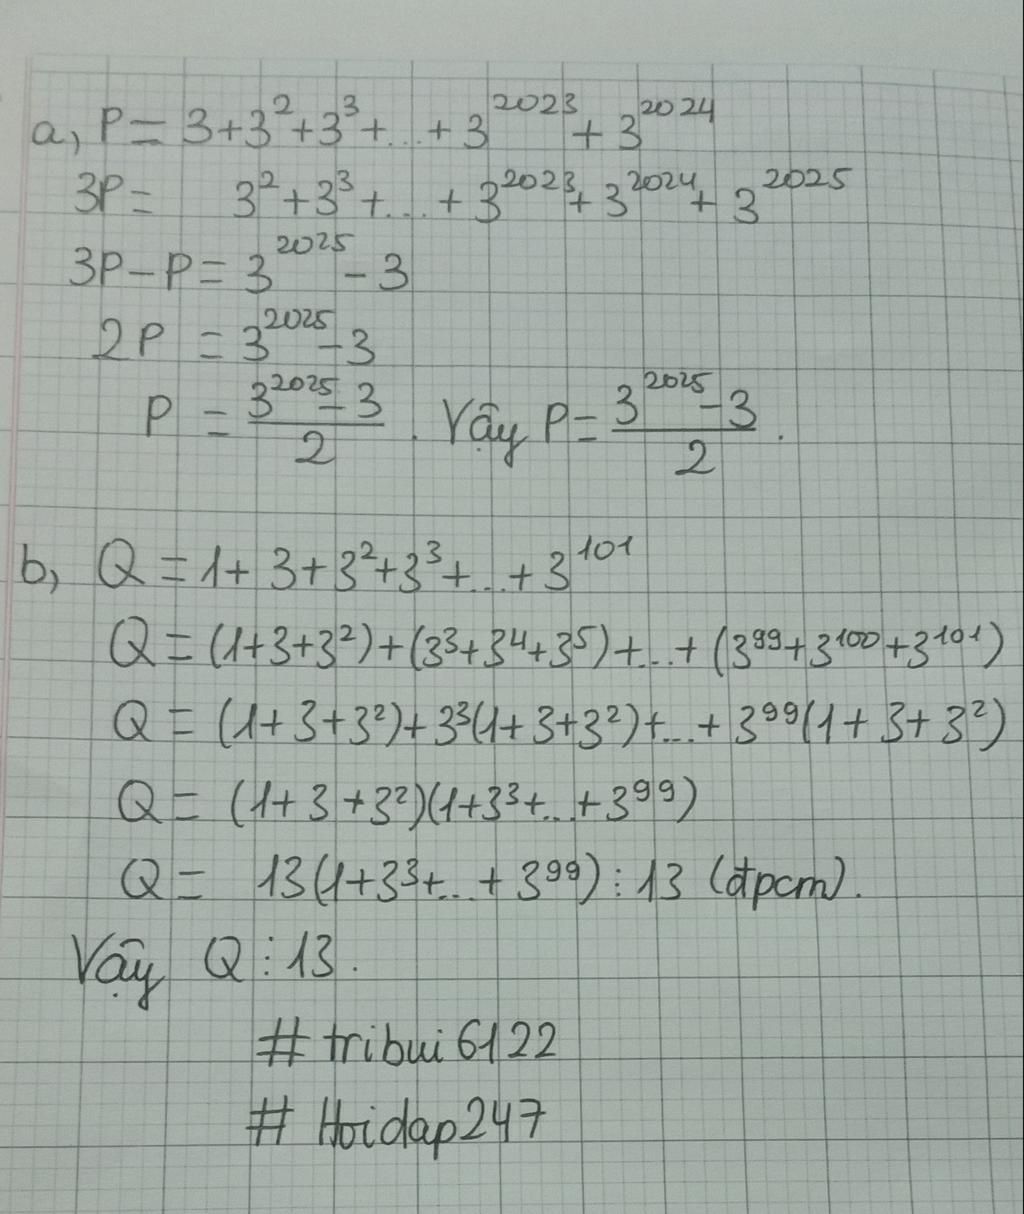 a, P = 3+3²+3³+...+3²⁰²³+3²⁰²⁴
3P = 3²+3³+...+3²⁰²³+3²⁰²⁴+3²⁰²⁵
3P-P = 3²⁰²⁵-3
2P = 3²⁰²⁵-3
P = (3²⁰²⁵-3)/2. Vậy P = (3²⁰²⁵-3)/2.
b, Q = 1+3+3²+3³+...+3¹⁰¹
Q = (1+3+3²)+(3³+3⁴+3⁵)+...+(3⁹⁹+3¹⁰⁰+3¹⁰¹)
Q = (1+3+3²)+3³(1+3+3²)+...+3⁹⁹(1+3+3²)
Q = (1+3+3²)(1+3³+...+3⁹⁹)
Q = 13(1+3³+...+3⁹⁹)⋮13 (đpcm).
Vậy Q⋮13.
# tribui6122
# Hoidap247